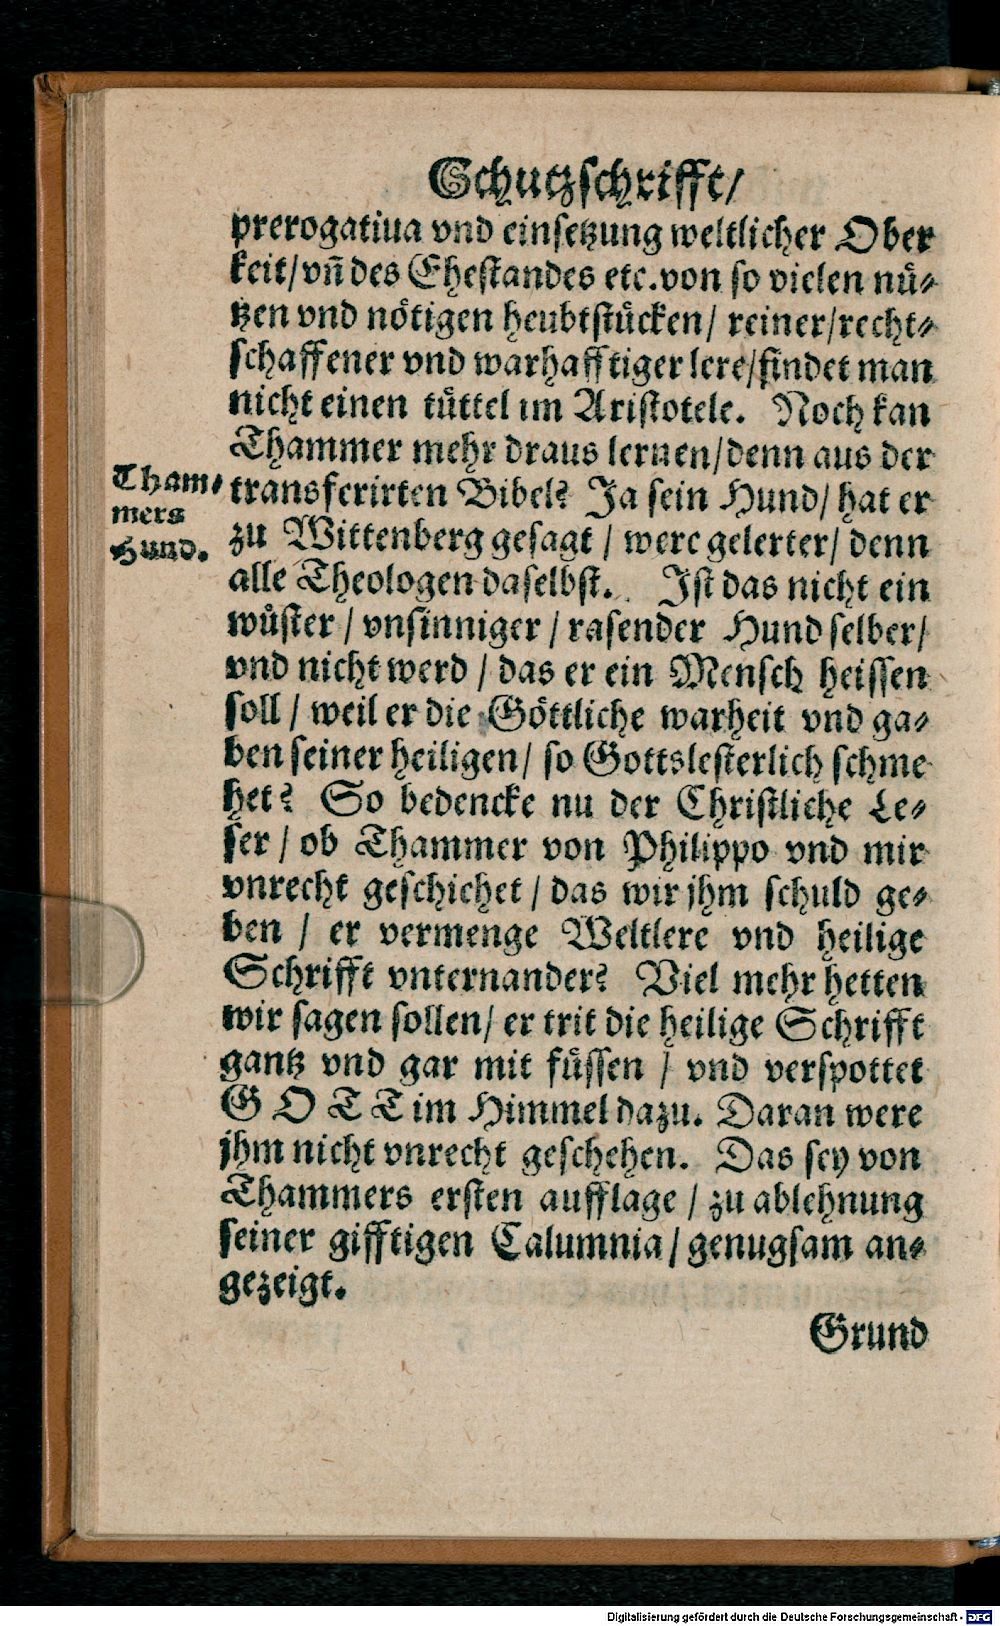 Schutzschrifft/
prerogatiua vnd einsetzung weltlicher Ober
keit/ vñ des Ehestandes etc. von so vielen nü⸗
tzen vnd nötigen heubtstücken/ reiner/ recht⸗
schaffener vnd warhafftiger lere/ findet man
nicht einen tüttel im Aristotele. Noch kan
Thammer mehr draus lernen/ denn aus der
Tham⸗
mers
Hund.
transferirten Bibel? Ja sein Hund/ hat er
zu Wittenberg gesagt / were gelerter/ denn
alle Theologen daselbst. Ist das nicht ein
wüster / vnsinniger / rasender Hund selber/
vnd nicht werd / das er ein Mensch heissen
soll / weil er die Göttliche warheit vnd ga⸗
ben seiner heiligen/ so Gottslesterlich schme
het? So bedencke nu der Christliche Le⸗
ser / ob Thammer von Philippo vnd mir
vnrecht geschichet / das wir jhm schuld ge⸗
ben / er vermenge Weltlere vnd heilige
Schrifft vnternander? Viel mehr hetten
wir sagen sollen/ er trit die heilige Schrifft
gantz vnd gar mit füssen / vnd verspottet
GOTT im Himmel dazu. Daran were
jhm nicht vnrecht geschehen. Das sey von
Thammers ersten aufflage / zu ablehnung
seiner gifftigen Calumnia / genugsam an⸗
gezeigt.
Grund
Digitalisierung gefördert durch die Deutsche Forschungsgemeinschaft - DFG